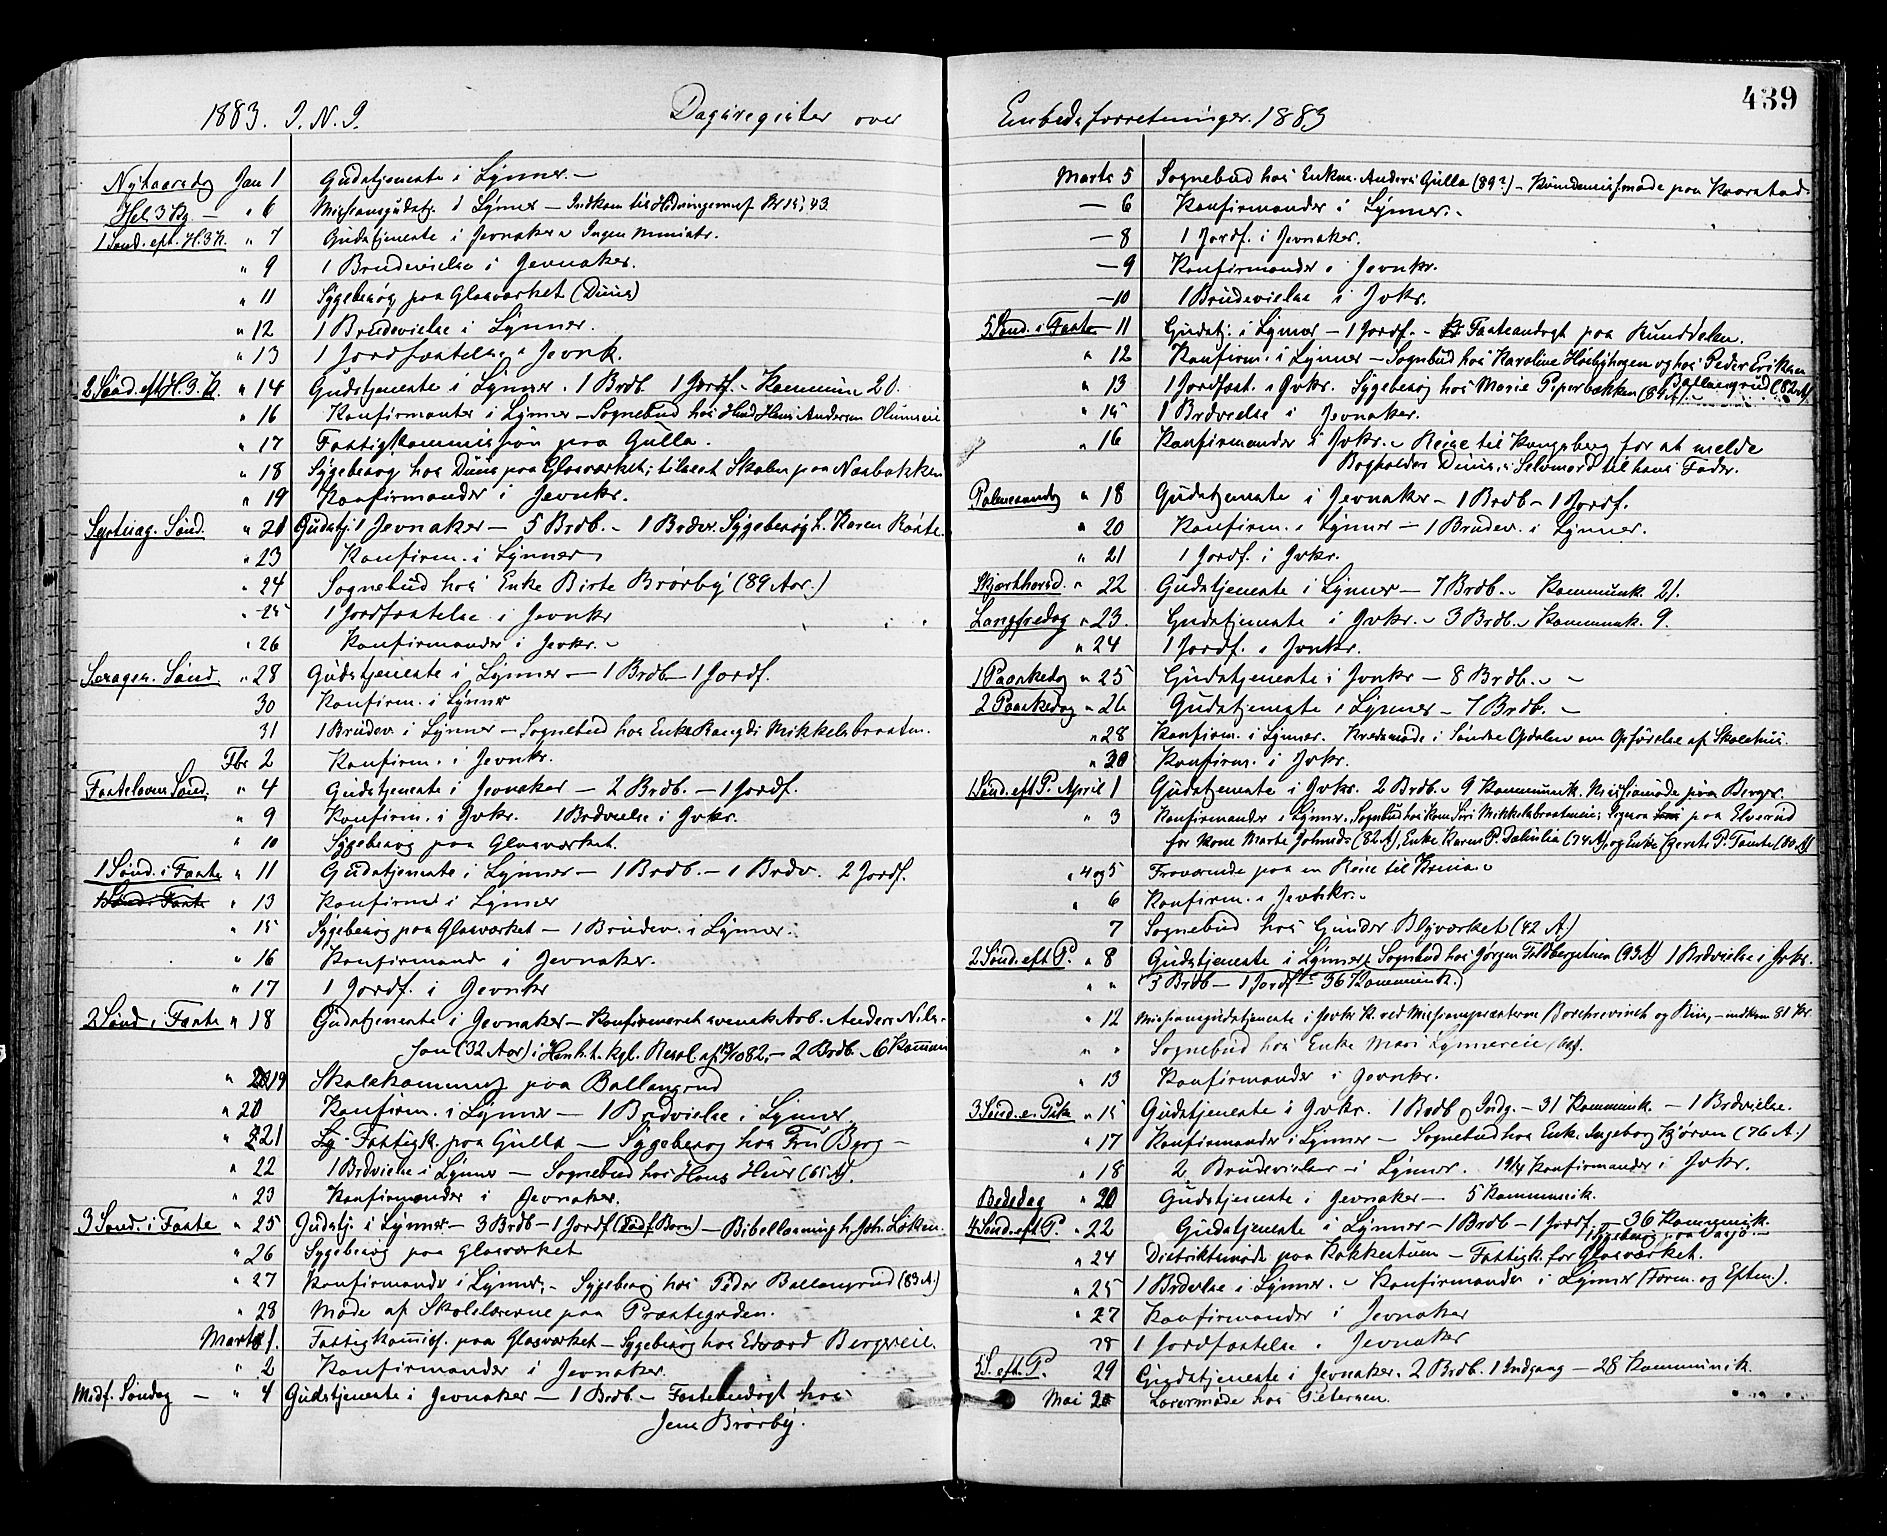 439
1883. I. N. I. Dagsregister over
Nytaarsdag Jan 1 Gudstjeneste i Lynner. —
Hel. 3 Kg. — " 6 Missionsgudstj. i Lynner — Indkom til Hedningemis. Kr 15,43.
1 Sønd. eft. H. 3 K. " 7 Gudstjeneste i Jevnaker Ingen ministr.
" 9 1 Brudevielse i Jevnaker.
" 11 Sygebesøg paa Glasværket (Duus)
" 12 1 Brudevielse i Lynner.
" 13 1 Jordfæstelse i Jevnk.
2 Sønd. eft H. 3. K. " 14 Gudstjeneste i Lynner. 1 Brdb 1 Jordf. — Kommun 20.
" 16 Konfirmanter i Lynner — Sognebud hos Hans Andersen
" 17 Fattigkommission paa Gulla.
" 18 Sygebesøg hos Duus paa Glasværket; tilseet Skolen paa Næsbakken
" 19 Konfirmander i Jevnkr.
Septuag. Sønd. " 21 Gudstj. i Jevnaker — 5 Brdb. — 1 Brdev. Sygebesøg h. Karen Røste.
" 23 Konfirm. i Lynner
" 24 Sognebud hos Enke Birte Brørby (89 Aar.)
" 25 1 Jordfæstelse i Jevnkr
" 26 Konfirmander i Jevkr. —
Sexages. Sønd. " 28 Gudstjeneste i Lynner — 1 Brdb — 1 Jordf.
30 Konfirm. i Lynner
31 1 Brudev i Lynner — Sognebud hos Enke Rangdi Mikkelsbraaten.
Fbr 2 Konfirm. i Jevnkr.
Fastelavns Sønd. " 4 Gudstjeneste i Jevnaker — 2 Brdb. — 1 Jordf.
" 9 Konfirm. i Jvkr. 1 Brdvielse i Jvkr.
" 10 Sygebesøg paa Glasværket.
1 Sønd. i Faste " 11 Gudstjeneste i Lynner — 1 Brdb. — 1 Brdv. 2 Jordf.
" 13 Konfirmd i Lynner
" 15 Sygebesøg paa Glasværket — 1 Brudev. i Lynner.
" 16 Konfirmand i Jevnaker.
" 17 1 Jordf. i Jevnkr
2 Sønd i Faste " 18 Gudstjeneste i Jevnaker — Konfirmeret svensk Arb. Anders Nils-
son (32 Aar) i Henh. t. kgl. Resol. af 82, — 2 Brdb. — 6 Kommun
" 19 Skolekommission paa Ballangrud
" 20 Konfirm. i Lynner — 1 Brdvielse i Lynner
" 21 Fattigk. paa Gulla — Sygebesøg hos Fru Berg —
" 22 1 Brdvielse i Lynner — Sognebud hos Hans (65 A).
" 23 Konfirmander i Jevnaker.
3 Sønd. i Faste " 25 Gudstj. i Lynner — 3 Brdb — 1 Jordf (Dødf. Barn) — Bibellæsning h. Joh. Løken.
" 26 Sygebesøg paa Glasværket
" 27 Konfirmander i Lynner, — Sygebesøg hos Peder Ballangrud (83 A.)
" 28 Møde af Skolelærerne paa Præstegrden.
Marts 1. Fattigkomiss. paa Glasværket — Sygebesøg hos Edvard Bergseie.
" 2 Konfirmander i Jevnaker
Midf. Søndag — " 4 Gudstjeneste i Jevnaker — 1 Brdb — Fasteandagt hos
Jens Brørby.
Embedsforretninger. 1883
Marts 5 Sognebud hos Enkm. Anders Gulla (89?) —
— 6 Konfirmander i Lynner. —
— 8 1 Jordf. i Jevnaker.
— 9 Konfirmander i Jevnkr.
— 10 1 Brudevielse i Jvkr.
5 Sønd. i Faste — 11 Gudstj. i Lynner — 1 Jordf. — Fasteandagt paa Runddelen.
" 12 Konfirm. i Lynner — Sognebud hos Karoline Høibyhagen og hos Peder Eriksen
Ballangrud (82 A).
" 13 1 Jordfæst. i Jvkr. Sygebesøg hos Marie Piperbakken
" 15 1 Brdvielse i Jevnaker.
" 16 Konfirmander i Jvkr. — Reise til Kongsberg for at melde
Bogholder Duus's Selvmord til hans Fader.
Palmesøndag " 18 Gudstjeneste i Jevnaker — 1 Brdb — 1 Jordf.
" 20 Konfirm. i Lynner — 1 Brudev. i Lynner.
" 21 1 Jordf. i Jvkr.
Skjærthorsd. " 22 Gudstjeneste i Lynner — 7 Brdb. — Kommunk. 21.
Langfredag " 23. Gudstjeneste i Jvkr. — 3 Brdb. — Kommunk. 9.
" 24 1 Jordf. i Jvnkr.
1 Paaskedag " 25 Gudstjeneste i Jvnkr — 8 Brdb. — —
2 Paaskedag " 26 Gudstjeneste i Lynner — 7 Brdb. —
" 28 Konfirm. i Lynner. Kredsmøde i Søndre Opdalen om Opførelse af Skolehus.
" 30 Konfirm. i Jvkr.
1 Sønd. eft P. April 1 Gudstjeneste i Jvkr. 2 Brdb. — 9 Kommunk. Missionsmøde paa Berger.
" 3 Konfirmander i Lynner. Sognebud hos Kone Siri Mikkelsbraateneie; paa Elverud
for Kone Marte Johnsds (82 A), Enke Karen P. Dahlslia (74 A), og Enke Kjersti P. Tomte (80 A)
" 4 og 5 Fraværende paa en Reise til Krnia. —
" 6 Konfirm. i Jevnkr. —
7 Sognebud hos Gunder Blyværket (42 A)
2 Sønd. eft P. " 8 Gudstjeneste i Lynner. Sognebud hos Jørgen (93 A) 1 Brdvielse i Jvkr.
" " 3 Brdb — 1 Jordf — 36 Kommunk.
" 12 Missionsgudstjeneste i Jevkr K. ved Missionspræsterne Borchrevinck og Riis, — indkom 81 Kr
" " Sognebud hos Enke Mari Lynnereie
" 13 Konfirmander i Jevnkr.
3 Sønd. e. Psk " 15 Gudstjeneste i Jvkr. 1 Brdb, Indg. — 31 Kommunk. — 1 Brdvielse.
" 17 Konfirmander i Lynner — Sognebud hos Enk. Ingeborg Kjørven (76 A.)
" 18 2 Brudevielser i Lynner. 19/4 Konfirmander i Jvkr.
Bededag " 20 Gudstjeneste i Jevnaker — 5 Kommunik.
4 Sønd. eft P. " 22 Gudstjeneste i Lynner — 1 Brdb — 1 Jordf. — 36 Kommunik.
" 24 Distriktsmøde paa Kokkestuen — Fattigk. for Glasværket.
" 25 1 Brdvlse i Lynner. — Konfirmander i Lynner (Form. og Efterm.).
" 27 Konfirmander i Jevnaker
28 1 Jordfæstelse i Jevnaker
5 S. eft. P. 29 Gudstjeneste i Jevnaker. 2 Brdb. 1 Indgang — 28 Kommunik.
Mai 2 Lærermøde hos Petersen.